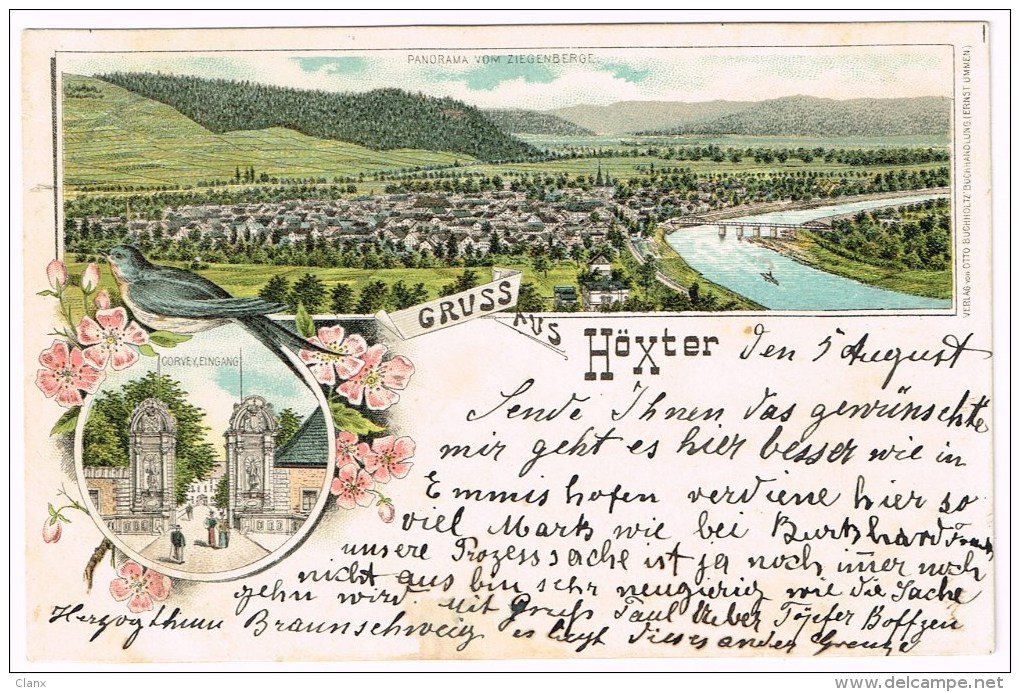 PANORAMA VOM ZIEGENBERGE.
VERLAG von OTTO BUCHHOLTZ' BUCHHANDLUNG (ERNST UMMEN)
GRUSS AUS HöXter
CORVEY, EINGANG
Den 5 August
Sende Ihnen das gewünschte
mir geht es hier besser wie in
Emmishofen verdiene hier so
viel Mark wie bei Burkhard
unsere Prozesssache ist ja noch im̅er noch
nicht aus bin sehr neugierig wie die Sache
gehn wird. Mit Gruß Paul Ueber Töpfer Boffzen
Herzogthum Braunschweig es liegt dieses an der Grenze
Clanx
www.delcampe.net